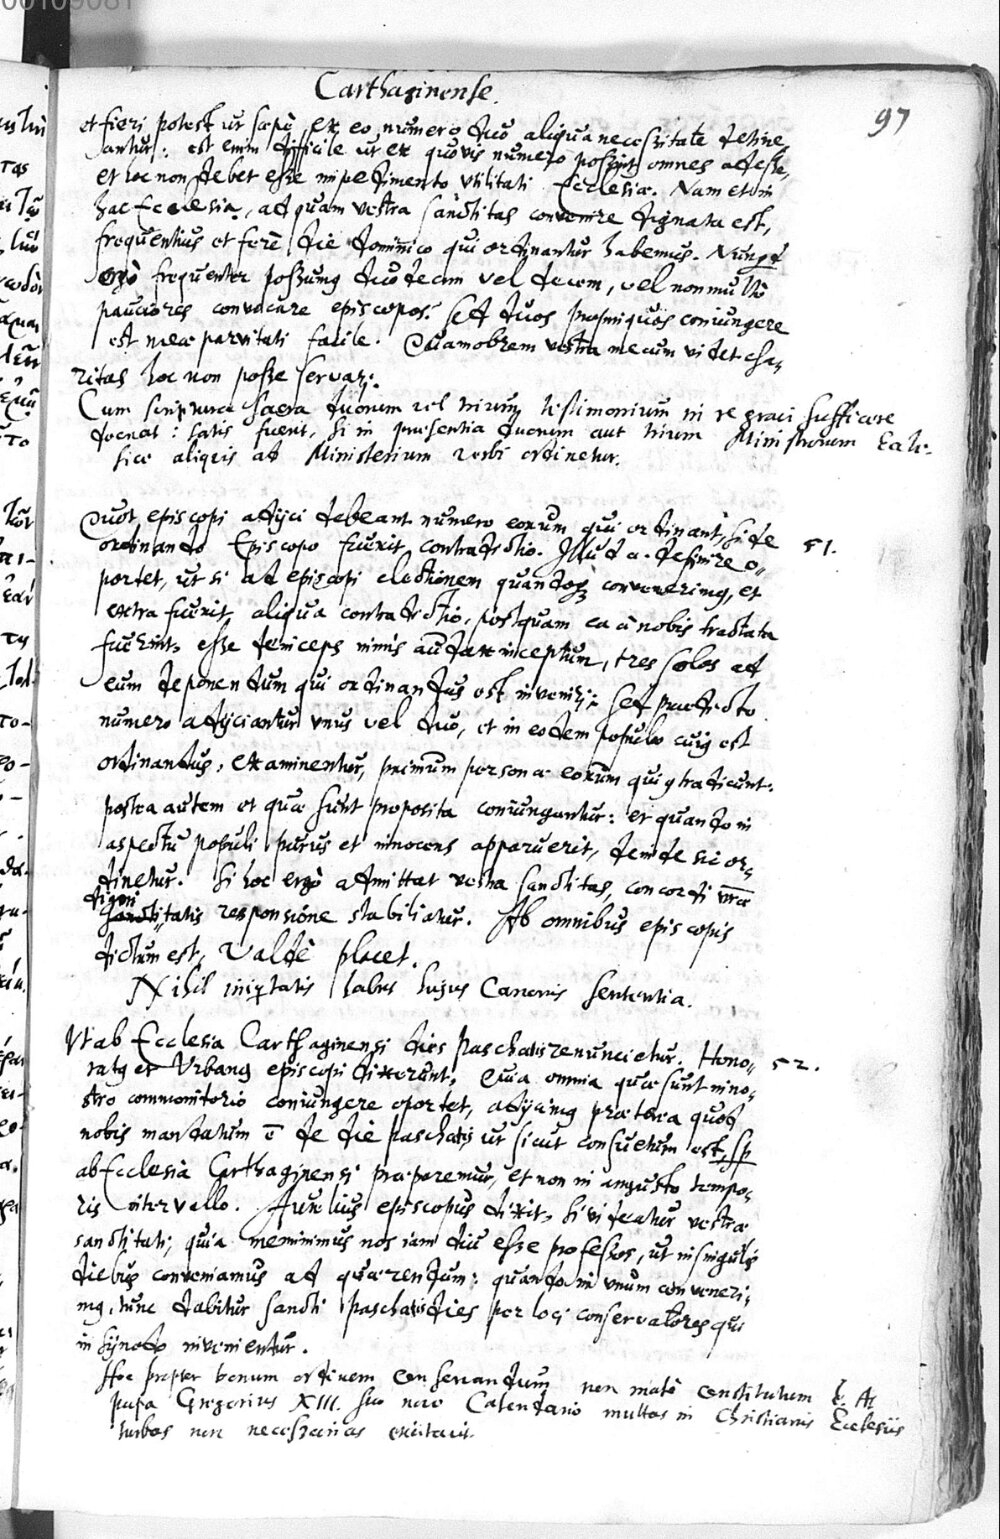 00109081
Carthaginense.
97
et fieri potest ut sæpè, ex eo numero duo aliqua necessitate detine,
antur: est enim difficile ut ex quovis numero possint omnes adesse,
et hoc non debet esse impedimento utilitati Ecclesiæ. Nam et in
hac Ecclesia, ad quam vestra sanctitas convenire dignata est,
frequentius et ferè die dominico qui ordinantur habemus. Nunqd
ergò frequenter possumg duodecim vel decem, vel non multò
pauciores convocare episcopos? Sed duos propinquos coniungere
est meæ parvitati facile. Quamobrem vestra mecum videt cha,
ritas hoc non posse servari.
Cum scriptura sacra duorum vel trium testimonium in re gravi sufficere
doceat: satis fuerit, si in præsentia duorum aut trium Ministrorum Eccle-
siæ aliquis ad Ministerium verbi ordinetur.
Quot episcopi adijci debeant numero eorum qui ordinant, si de
51.
ordinando Episcopo fuerit contradictio. Illud a. definire o,,
portet, ut si ad episcopi electionem quandoq convenerimg, et
extra fuerit aliqua contradictio, postquam ea à nobis tractata
fuerint, esse deinceps nimis audax inceptum, tres solos ad
eum deponendum qui ordinandus est inveniri: sed prædicto
numero adijciantur unus vel duo, et in eodem populo cuig est
ordinandus, examinentur, primum personæ eorum qui gtradicunt:
postea autem et quæ sunt proposita coniungantur: et quando in
aspectu populi purus et innocens apparuerit, deinde sic or,,
dinetur. Si hoc ergò admittat vestra sanctitas, concordi vræ
digni
sanctitatis responsione stabiliatur. Ab omnibus episcopis
dictum est, Valdè placet.
Nihil habet hujus Canonis sententia.
Ut ab Ecclesia Carthaginensi dies paschatis renuncietur. Hono,,
52.
ratg et Urbang episcopi dixerunt, Quia omnia quæ sunt in no,
stro commonitorio coniungere oportet, adijcimg præterea quod
nobis mandatum ē de die paschatis ut sicut consuetum est, sp
ab Ecclesia Carthaginensi præparemur, et non in angusto tempo,
ris intervallo. Aurelius episcopus dixit, Si videatur vestræ
sanctitati, quia meminimus nos iam diu esse professos, ut in singulis
diebus conveniamus ad quærendum: quando in unum conveneri,
mg, tunc dabitur sancti paschatis dies per loci conservatores qui
in synodo invenientur.
Hoc propter bonum ordinem conservandum non malè constitutum ē. At
papa Gregorius XIII. suo novo Calendario multas in Christianis Ecclesiis
turbas non necessarias excitavit.